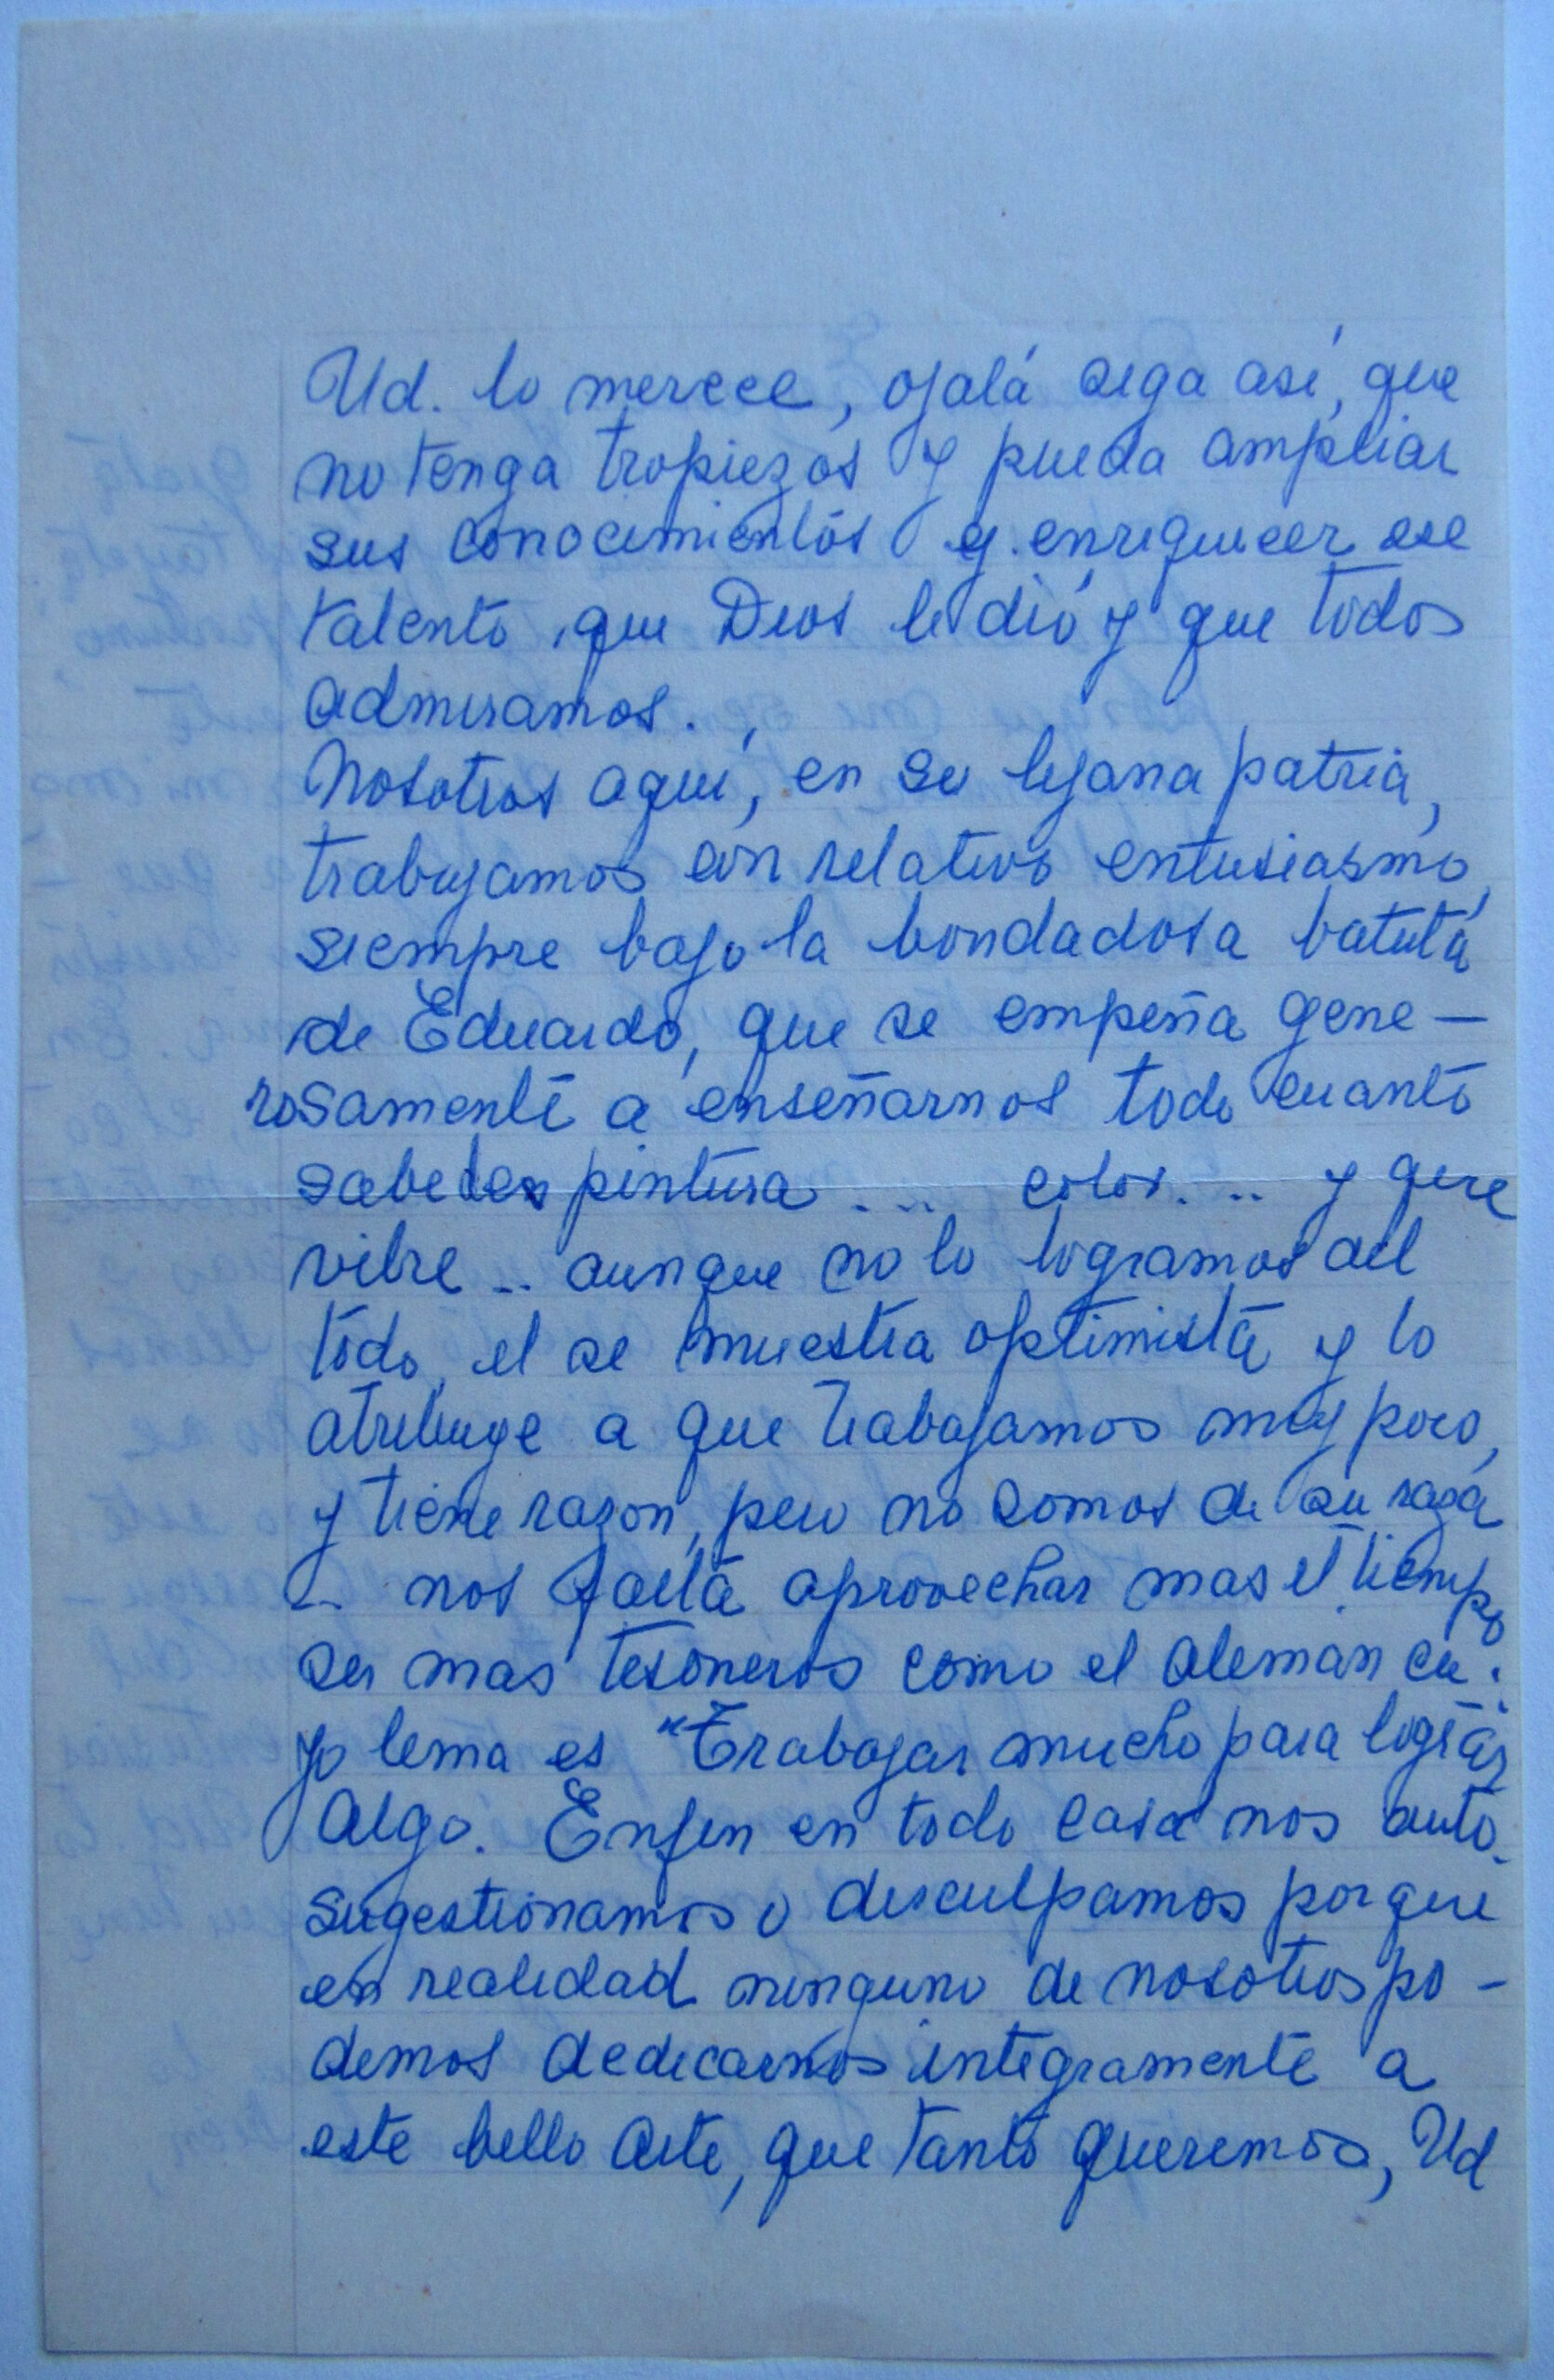 Ud. lo merece, ojalá siga así, que
no tenga tropiezos y pueda ampliar
sus conocimientos y enriquecer ese
talento que Dios le dió y que todos
admiramos.
Nosotros aquí, en su lejana patria,
trabajamos con relativo entusiasmo,
siempre bajo la bondadosa batuta
de Eduardo, que se empeña gene-
rosamente a enseñarnos todo cuanto
sabe de pintura .... color. .. y que
vibre .. aunque no lo logramos del
todo, el se muestra optimista y lo
atribuye a que trabajamos muy poco,
y tiene razon, pero no somos de su raza
.. nos falta aprovechar mas el tiempo
ser mas tesoneros como el aleman cu-
yo lema es "Trabajar mucho para lograr
Algo. Enfin en todo caso nos auto-
sugestionamos o disculpamos porque
en realidad ninguno de nosotros po-
demos dedicarnos integramente a
este bello Arte, que tanto queremos, Ud